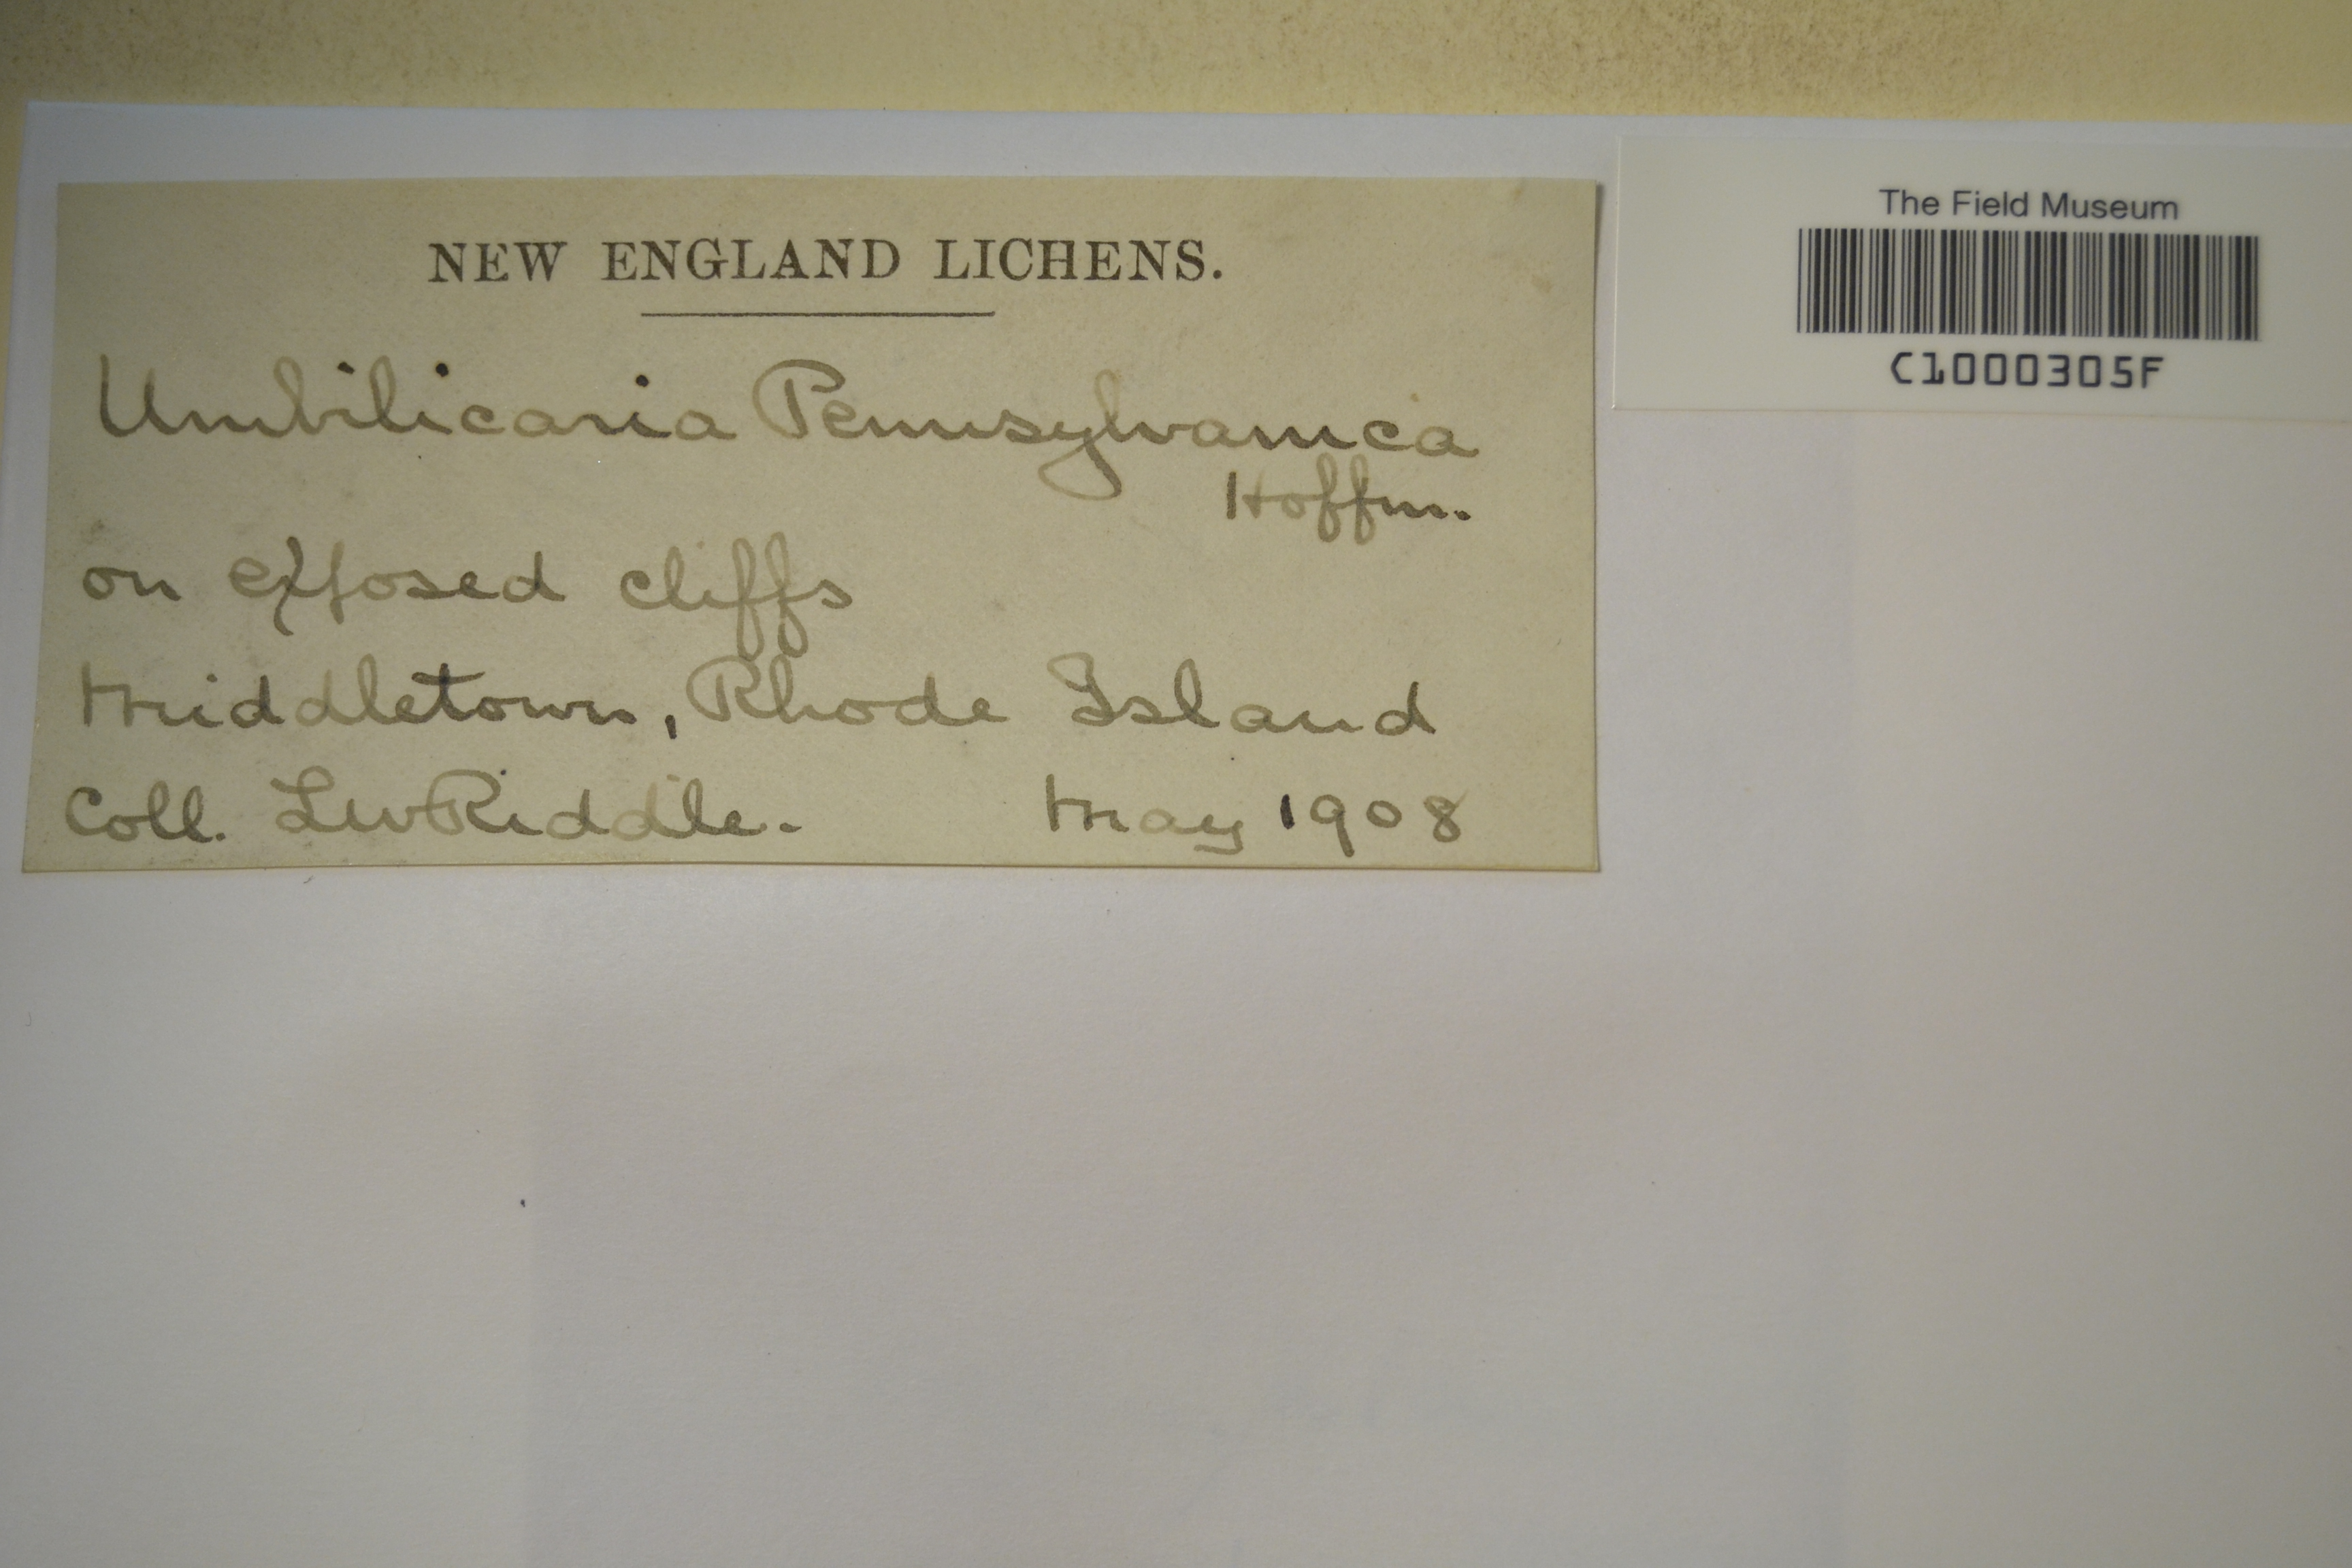 NEW ENGLAND LICHENS.
Umbilicaria Pennsylvanica
Hoffm.
on exposed cliffs
Middletown, Rhode Island
Coll. LWRiddle. May 1908
The Field Museum
C1000305F